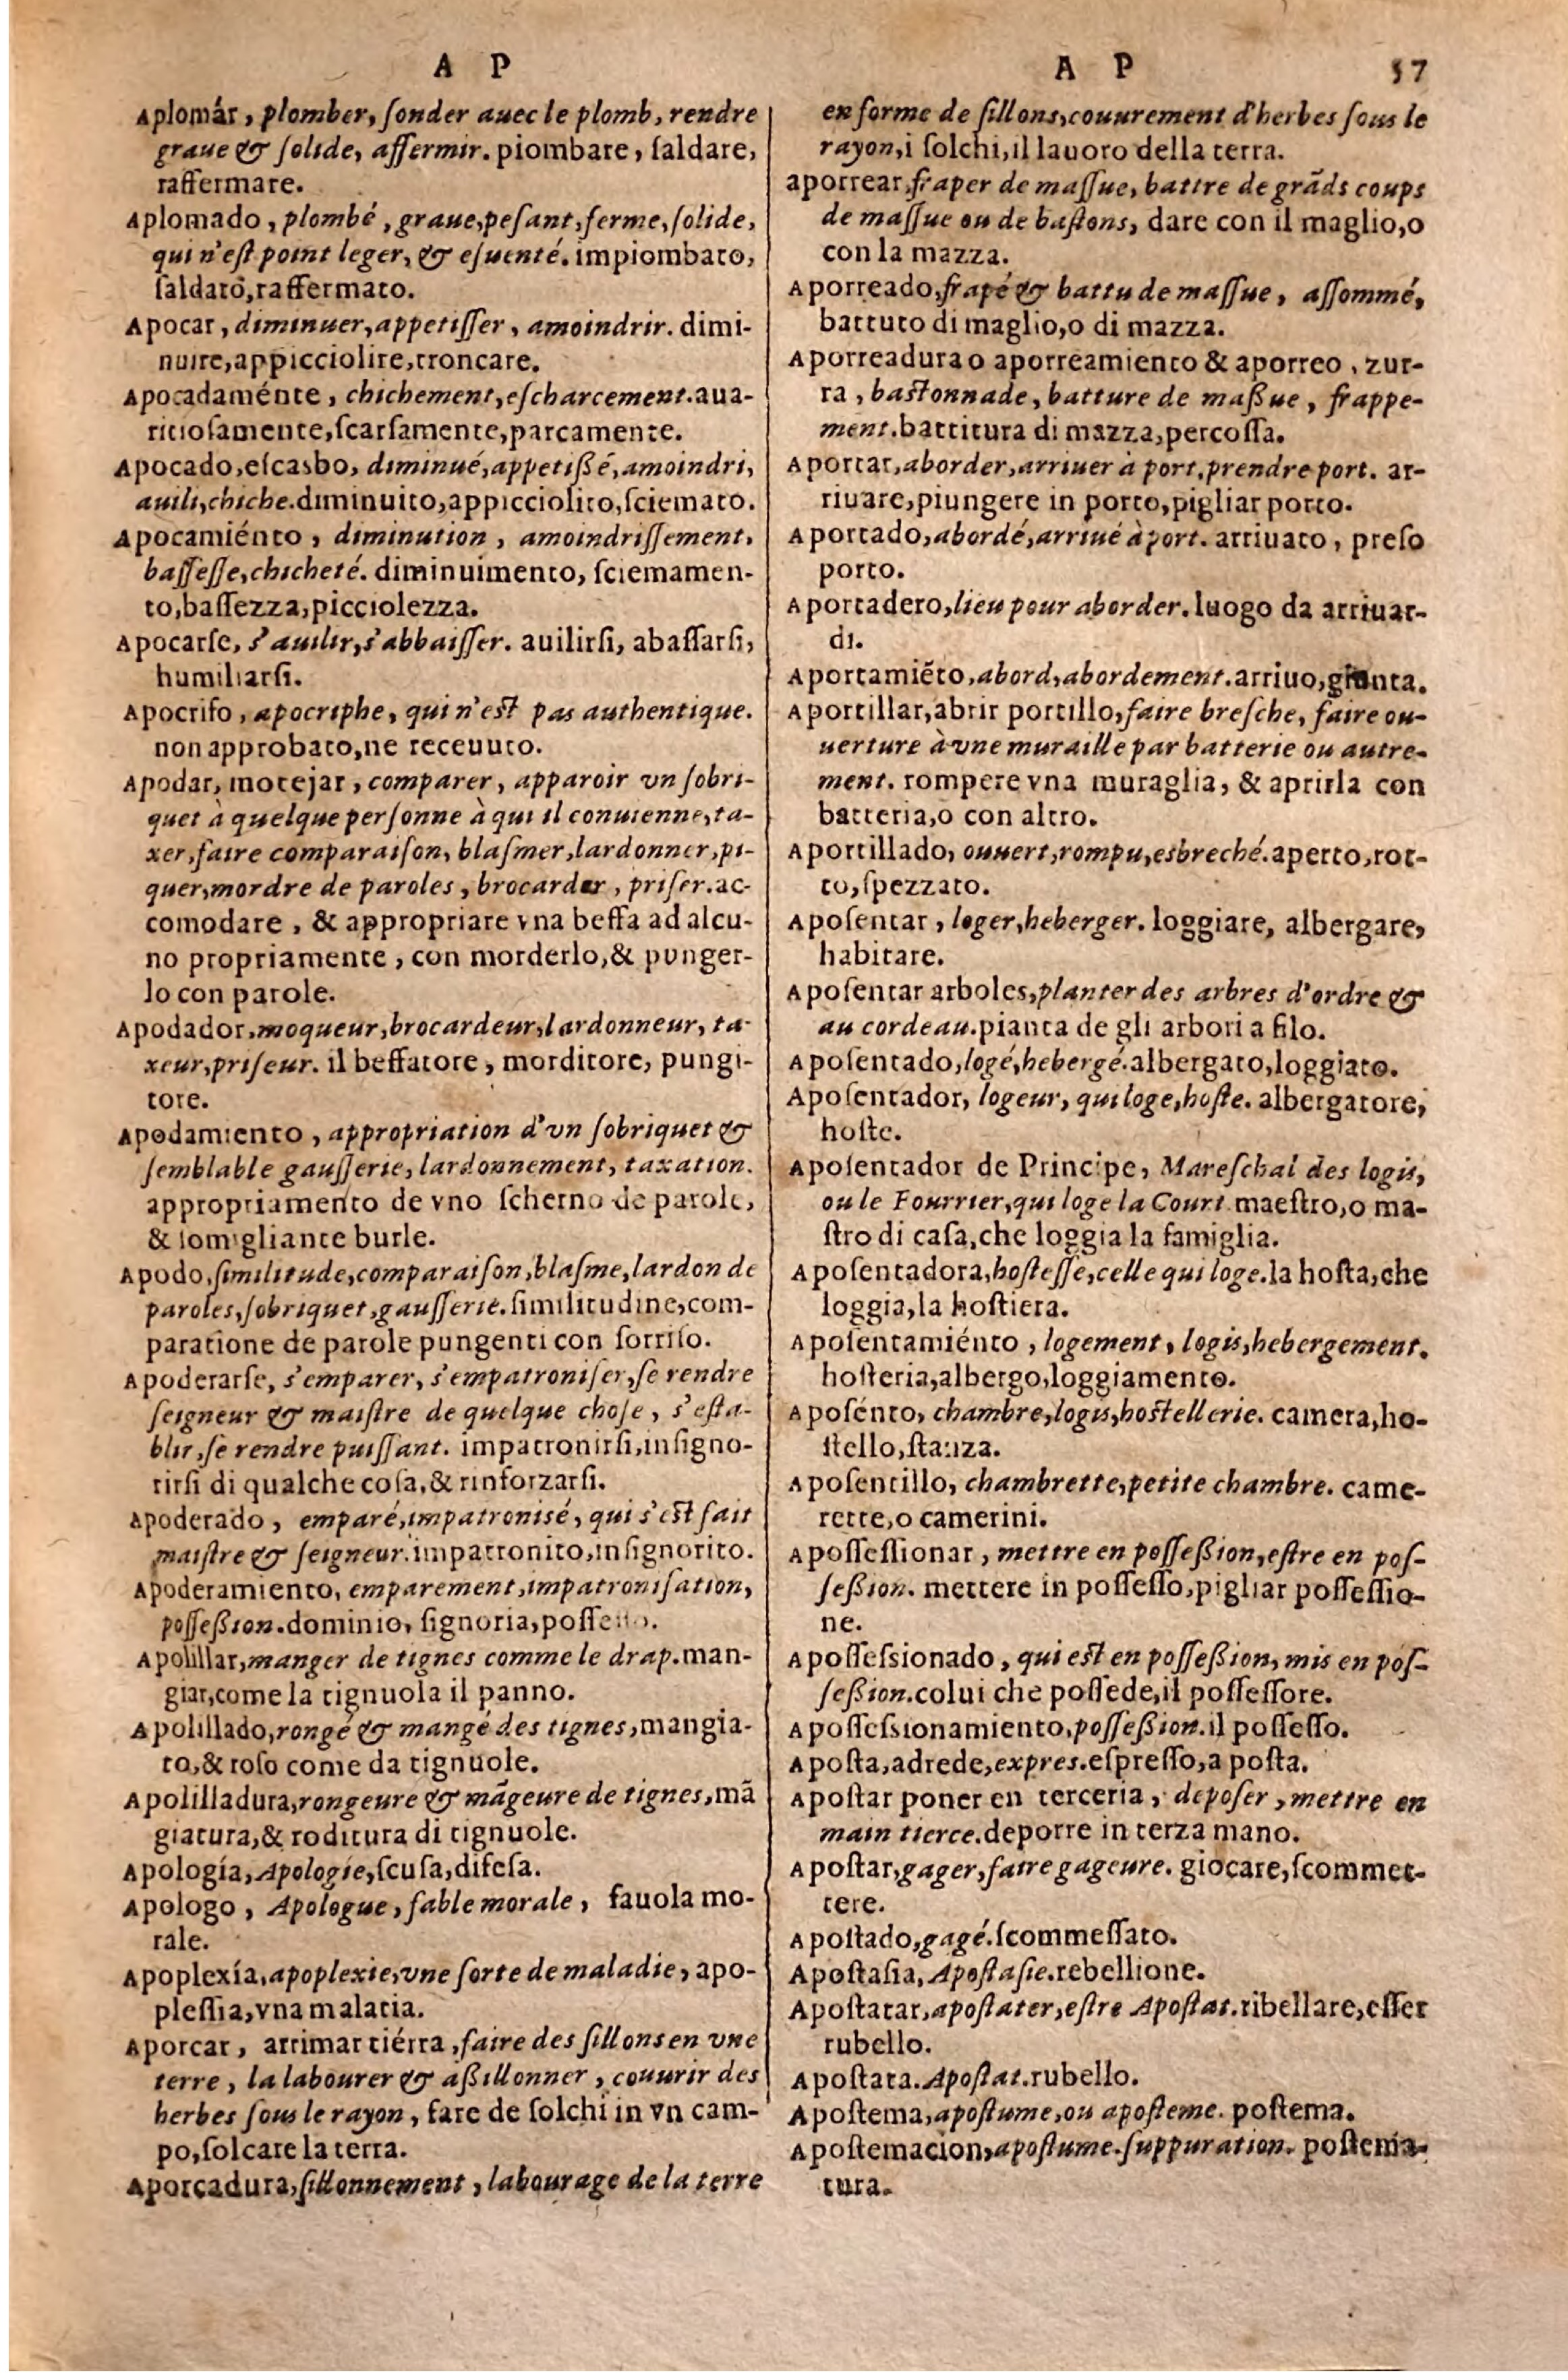 A P
Aplomár, plomber, ſonder auec le plomb, rendre
graue & ſolide, affermir. piombare, ſaldare,
raffermare.
Aplomado, plombé, graue, peſant, ferme, ſolide,
qui n'eſt point leger, & eſuenté. impiombato,
ſaldato, raffermato.
Apocar, diminuer, appetiſſer, amoindrir. dimi-
nuire, appicciolire, troncare.
Apocadaménte, chichement, eſcharcement. aua-
ritioſamente, ſcarſamente, parcamente.
Apocado, eſcasbo, diminué, appetißé, amoindri,
auili, chiche. diminuito, appicciolito, ſciemato.
Apocamiénto, diminution, amoindriſſement,
baſſeſſe, chicheté. diminuimento, ſciemamen-
to, baſſezza, picciolezza.
Apocarſe, s'auilir, s'abbaiſſer. auilirſi, abaſſarſi,
humiliarſi.
Apocrifo, apocriphe, qui n'eſt pas authentique.
non approbato, ne receuuto.
Apodar, motejar, comparer, apparoir vn ſobri-
quet à quelque perſonne à qui il conuienne, ta-
xer, faire comparaiſon, blaſmer, lardonner, pi-
quer, mordre de paroles, brocarder, priſer. ac-
comodare, & appropriare vna beffa ad alcu-
no propriamente, con morderlo, & punger-
lo con parole.
Apodador, moqueur, brocardeur, lardonneur, ta-
xeur, priſeur. il beffatore, morditore, pungi-
tore.
Apodamiento, appropriation d'vn ſobriquet &
ſemblable gauſſerie, lardonnement, taxation.
appropriamento de vno ſcherno de parole,
& ſomigliante burle.
Apodo, ſimilitude, comparaiſon, blaſme, lardon de
paroles, ſobriquet, gauſſerie. ſimilitudine, com-
paratione de parole pungenti con ſorriſo.
Apoderarſe, s'emparer, s'empatroniſer, ſe rendre
ſeigneur & maiſtre de quelque choſe, s'eſta-
blir, ſe rendre puiſſant. impatronirſi, inſigno-
rirſi di qualche coſa, & rinforzarſi.
Apoderado, emparé, impatronisé, qui s'eſt fait
maiſtre & ſeigneur. impatronito, inſignorito.
Apoderamiento, emparement, impatroniſation,
poſſeßion. dominio, ſignoria, poſſeſſo.
Apolillar, manger de tignes comme le drap. man-
giar, come la tignuola il panno.
Apolillado, rongé & mangé des tignes, mangia-
to, & roſo come da tignuole.
Apolilladura, rongeure & mãgeure de tignes, mã
giatura, & roditura di tignuole.
Apología, Apologie, ſcuſa, difeſa.
Apologo, Apologue, fable morale, fauola mo-
rale.
Apoplexía, apoplexie, vne ſorte de maladie, apo-
pleſſia, vna malatia.
Aporcar, arrimar tiérra, faire des ſillons en vne
terre, la labourer & aßillonner, couurir des
herbes ſous le rayon, fare de ſolchi in vn cam-
po, ſolcare la terra.
Aporcadura, ſillonnement, labourage de la terre
A P 57
en forme de ſillons, couurement d'herbes ſous le
rayon, i ſolchi, il lauoro della terra.
aporrear, fraper de maſſue, battre de grãds coups
de maſſue ou de baſtons, dare con il maglio, o
con la mazza.
Aporreado, frapé & battu de maſſue, aſſommé,
battuto di maglio, o di mazza.
Aporreadura o aporreamiento & aporreo, zur-
ra, baſtonnade, batture de maßue, frappe-
ment. battitura di mazza, percoſſa.
Aportar, aborder, arriuer à port, prendre port. ar-
riuare, piungere in porto, pigliar porto.
Aportado, abordé, arriué à port. arriuato, preſo
porto.
Aportadero, lieu pour aborder. luogo da arriuar-
di.
Aportamiẽto, abord, abordement. arriuo, giunta.
Aportillar, abrir portillo, faire breſche, faire ou-
uerture à vne muraille par batterie ou autre-
ment. rompere vna muraglia, & aprirla con
batteria, o con altro.
Aportillado, ouuert, rompu, esbreché. aperto, rot-
to, ſpezzato.
Apoſentar, loger, heberger. loggiare, albergare,
habitare.
Apoſentar arboles, planter des arbres d'ordre &
au cordeau. pianta de gli arbori a filo.
Apoſentado, logé, hebergé. albergato, loggiato.
Apoſentador, logeur, qui loge, hoſte. albergatore,
hoſte.
Apoſentador de Principe, Mareſchal des logis,
ou le Fourrier, qui loge la Court. maeſtro, o ma-
ſtro di caſa, che loggia la famiglia.
Apoſentadora, hoſteſſe, celle qui loge. la hoſta, che
loggia, la hoſtiera.
Apoſentamiénto, logement, logis, hebergement.
hoſteria, albergo, loggiamento.
Apoſénto, chambre, logis, hoſtellerie. camera, ho-
ſtello, ſtanza.
Apoſentillo, chambrette, petite chambre. came-
rette, o camerini.
Apoſſeſſionar, mettre en poſſeßion, eſtre en poſ-
ſeßion. mettere in poſſeſſo, pigliar poſſeſſio-
ne.
Apoſſeſsionado, qui eſt en poſſeßion, mis en poſ-
ſeßion. colui che poſſede, il poſſeſſore.
Apoſſeſsionamiento, poſſeßion. il poſſeſſo.
Apoſta, adrede, expres. eſpreſſo, a poſta.
Apoſtar poner en terceria, depoſer, mettre en
main tierce. deporre in terza mano.
Apoſtar, gager, faire gageure. giocare, ſcommet-
tere.
Apoſtado, gagé. ſcommeſſato.
Apoſtaſia, Apoſtaſie. rebellione.
Apoſtatar, apoſtater, eſtre Apoſtat. ribellare, eſſer
rubello.
Apoſtata. Apoſtat. rubello.
Apoſtema, apoſtume, ou apoſteme. poſtema.
Apoſtemacion, apoſtume. ſuppuration. poſtema-
tura.